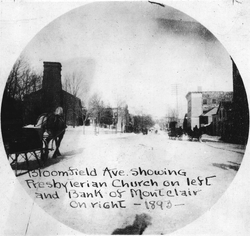 Bloomfield Ave. showing
Presbyterian Church on left
and Bank of Montclair
on right - 1893 -